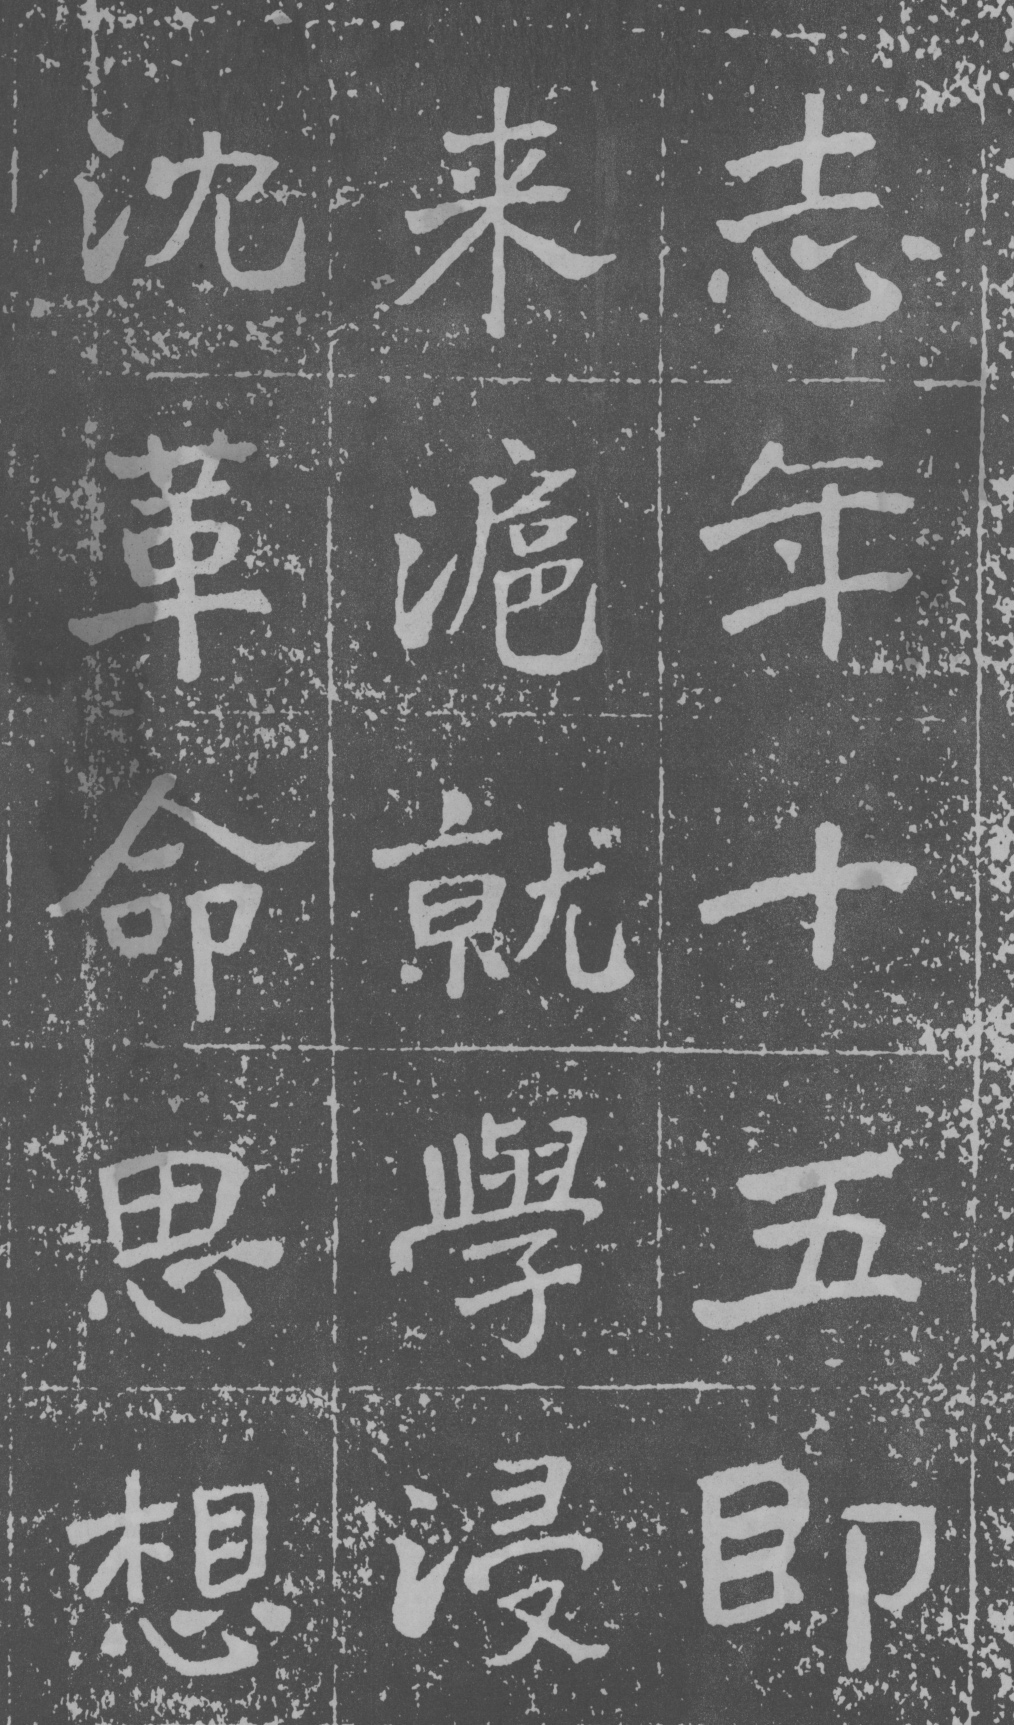 志年十五即
来滬就學浸
沈革命思想